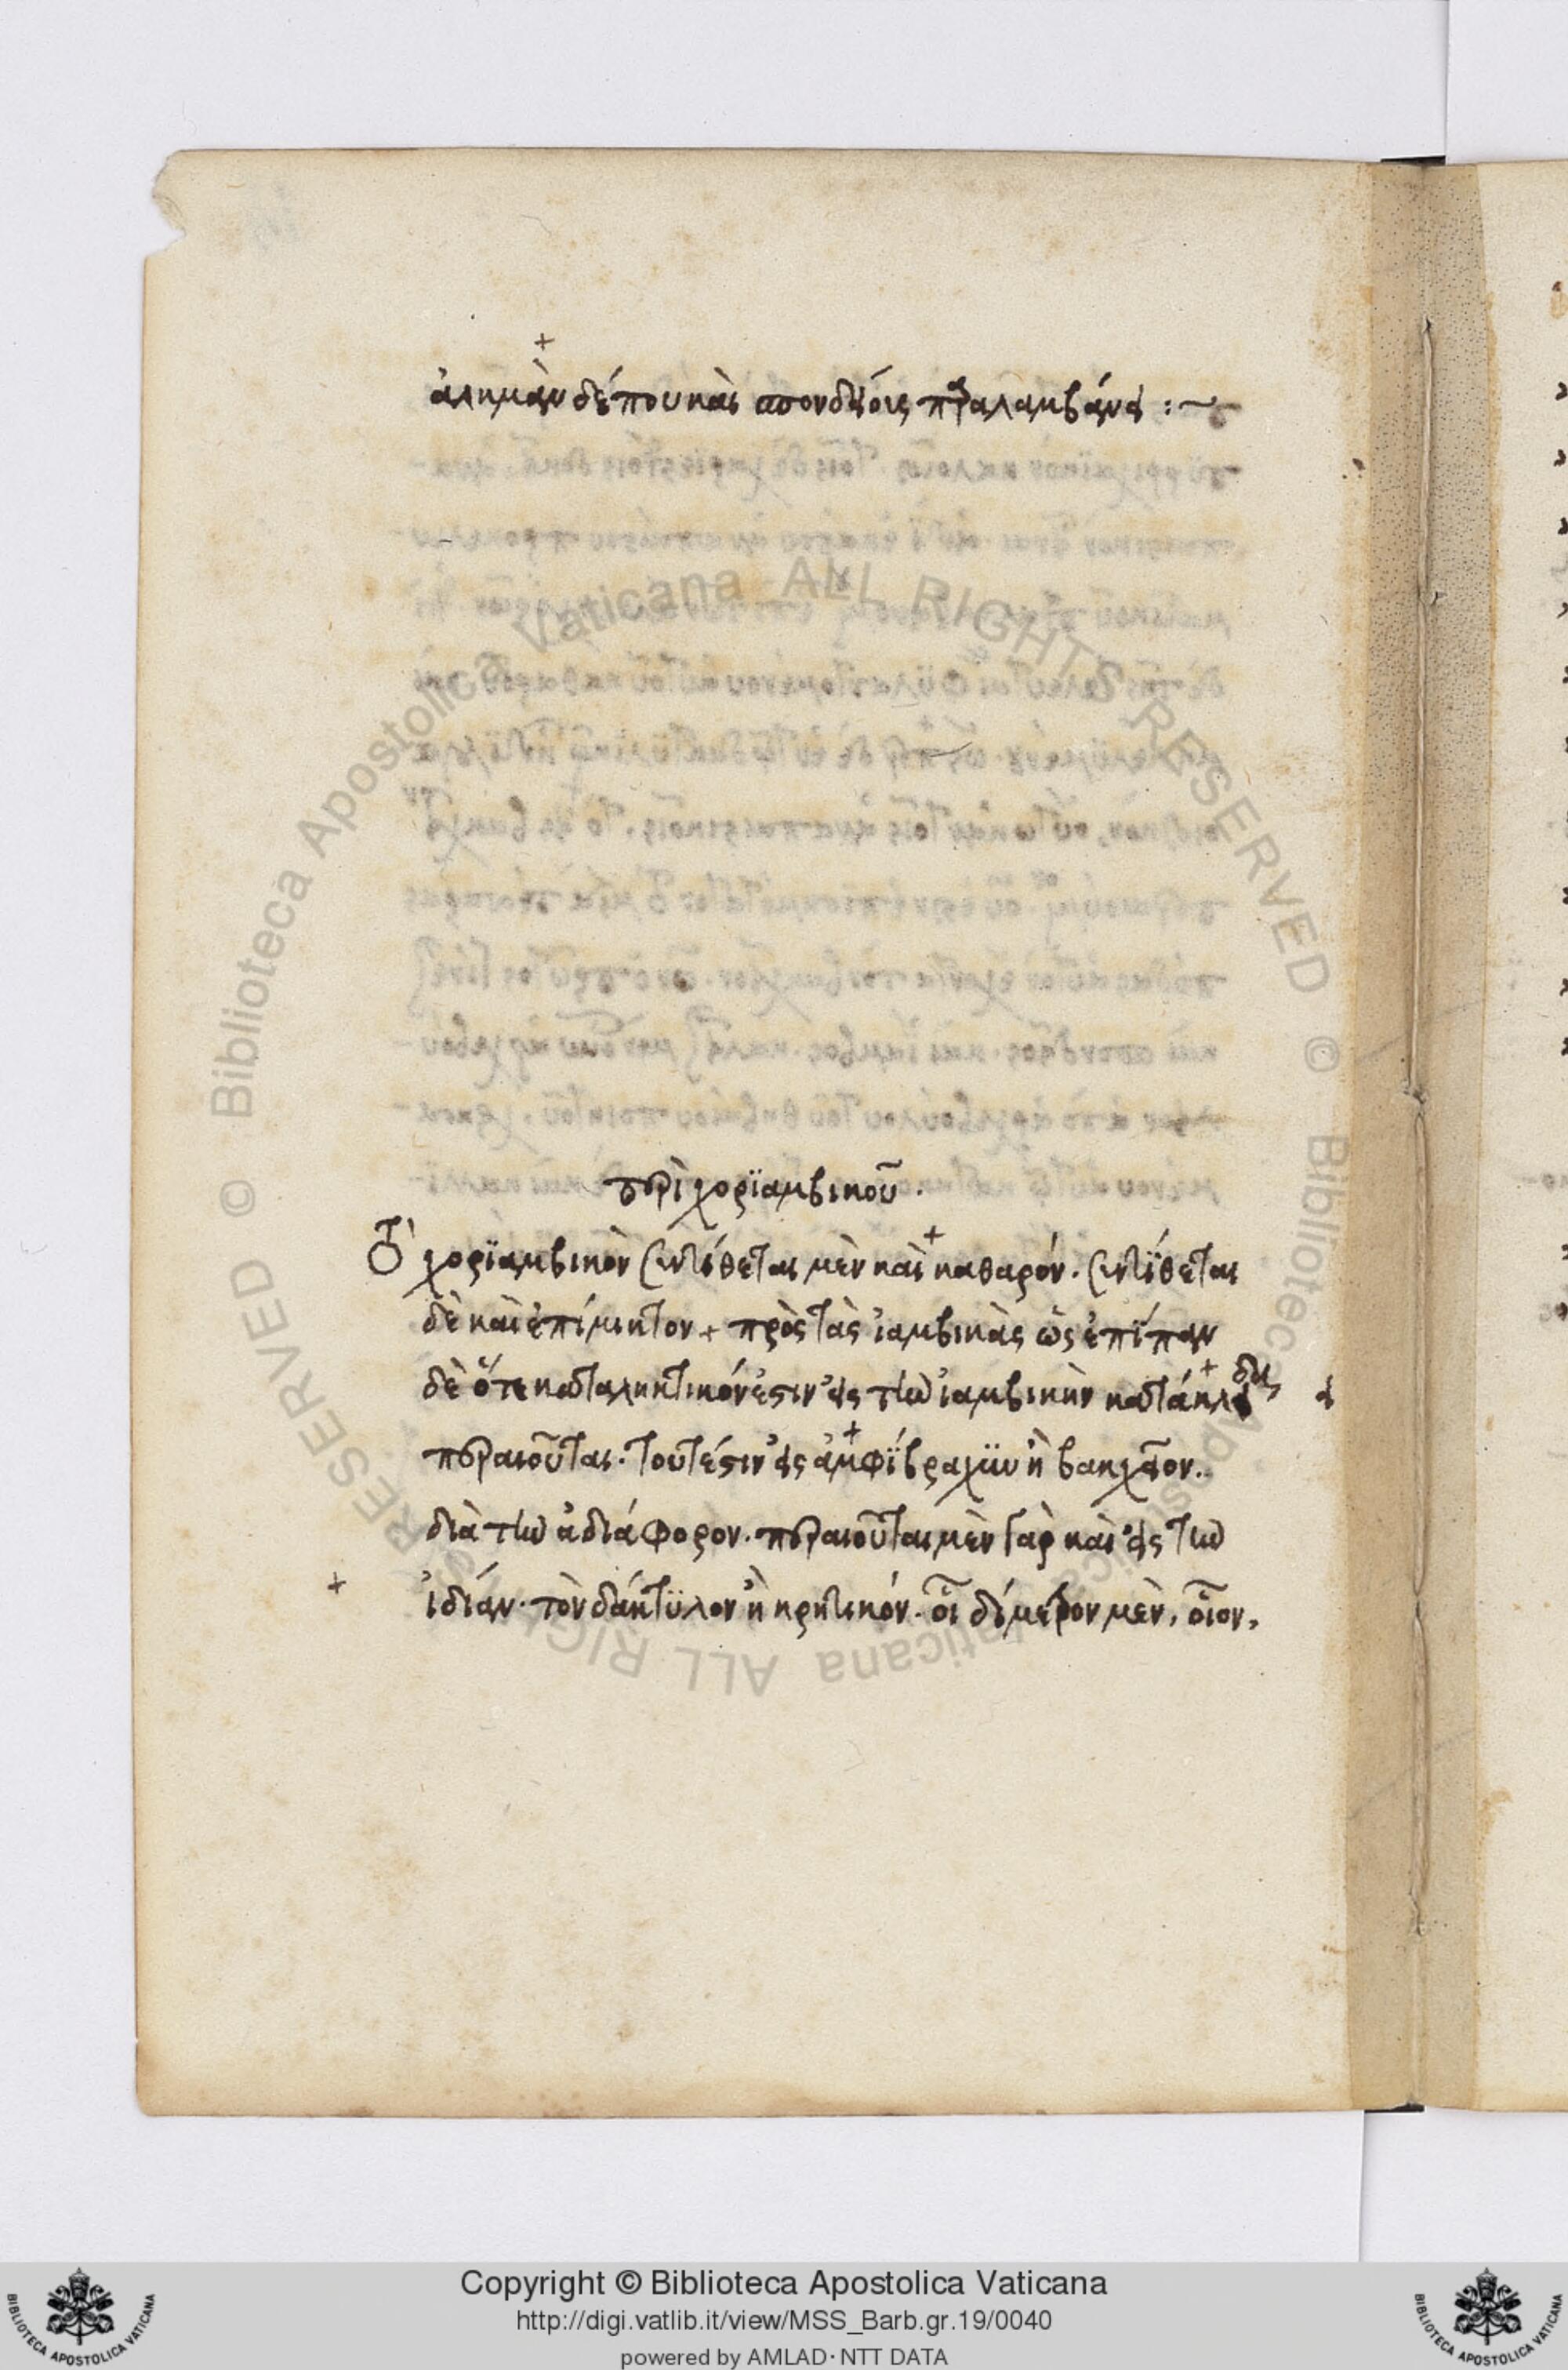 ἀλκμὰν δέ που καὶ σπονδείοις παραλαμβάνει :~
περὶ χορϊαμβικοῦ.
Τὸ χορϊαμβικὸν συντίθεται μὲν καὶ καθαρόν. συντίθεται
δὲ καὶ ἐπίμικτον + πρὸς τὰς ἰαμβικὰς ὡς ἐπίπαν
δὲ ὅτε καταληκτικόν ἐστιν εἰς τὴν ἰαμβικὴν κατάκλειδα
περαιοῦται. τουτέστιν εἰς ἀμφίβραχϋν ἢ βακχεῖον.
διὰ τὴν ἀδιάφορον. περαιοῦται μὲν γὰρ καὶ εἰς τὴν
ἰδίαν. τὸν δάκτϋλον ἢ κρητικόν. οἷον δίμετρον μὲν, οἷον,
Copyright © Biblioteca Apostolica Vaticana
http://digi.vatlib.it/view/MSS_Barb.gr.19/0040
powered by AMLAD·NTT DATA
© Biblioteca Apostolica Vaticana ALL RIGHTS RESERVED
© Biblioteca Apostolica Vaticana ALL RIGHTS RESERVED
BIBLIOTECA APOSTOLICA VATICANA
BIBLIOTECA APOSTOLICA VATICANA